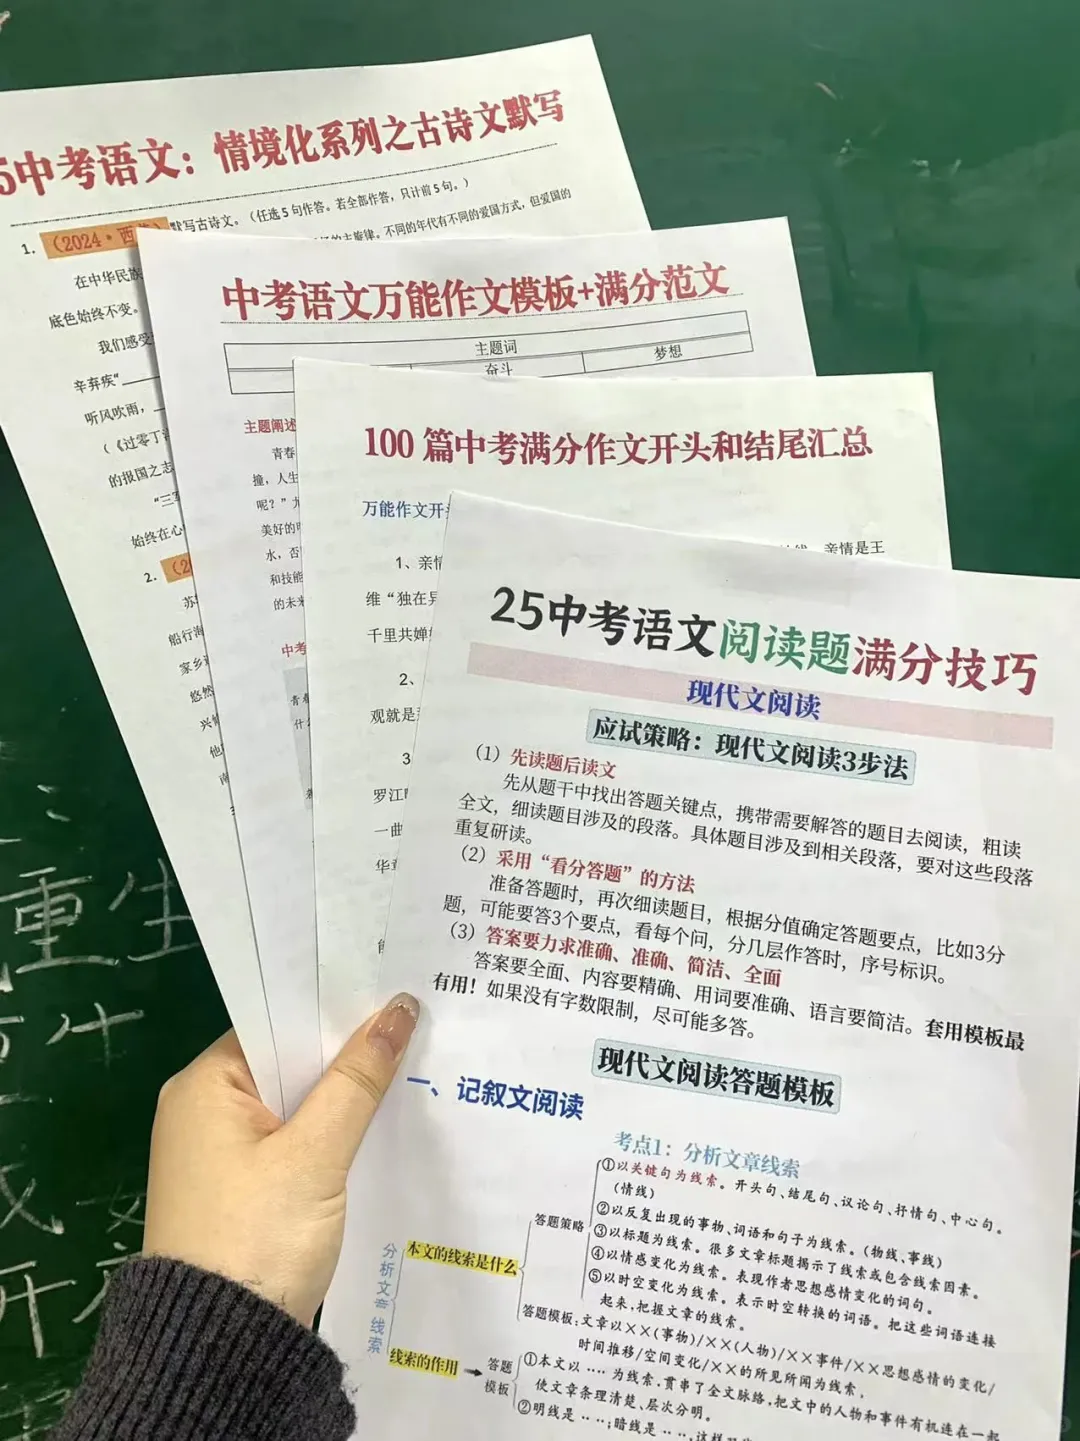 5中考语文：情境化系列之古诗文默写
1.（2024·西
默写古诗文。（任选5句作答。若全部作答，只计前5句。）
在中华民族
主旋律。不同的年代有不同的爱国方式，但爱国的
底色始终不变。
我们感受
辛弃疾“
听风吹雨，
（《过零丁
的报国之志
“三军
始终在心
2.（2
苏
船行海
家乡
悠然
兴
他
南
中考语文万能作文模板+满分范文
主题词
奋斗
梦想
主题阐述
青春
撞，人生
呢？”
美好的
水，否
和技能
的未来
中考
青春
什
100篇中考满分作文开头和结尾汇总
万能作文开
亲情是王
1、亲情
维“独在异
千里共婵娟
2、
观就是
3
罗江
一曲
华章
25中考语文阅读题满分技巧
现代文阅读
应试策略：现代文阅读3步法
（1）先读题后读文
先从题干中找出答题关键点，携带需要解答的题目去阅读，粗读
全文，细读题目涉及的段落。具体题目涉及到相关段落，要对这些段落
重复研读。
（2）采用“看分答题”的方法
准备答题时，再次细读题目，根据分值确定答题要点，比如3分
题，可能要答3个要点，看每个问，分几层作答时，序号标识。
（3）答案要力求准确、准确、简洁、全面
答案要全面、内容要精确、用词要准确、语言要简洁。套用模板最
有用！如果没有字数限制，尽可能多答。
现代文阅读答题模板
一、记叙文阅读
考点1：分析文章线索
分析文章线索
本文的线索是什么
答题策略
①以关键句为线索。开头句、结尾句、议论句、抒情句、中心句。
（情线）
②以反复出现的事物、词语和句子为线索。（物线、事线）
③以标题为线索。很多文章标题揭示了线索或包含线索因素。
④以情感变化为线索。表现作者思想感情变化的词句。
⑤以时空变化为线索。表示时空转换的词语。把这些词语连接
起来，把握文章的线索。
答题模板：文章以××(事物)/××(人物)/××事件/××思想感情的变化/
时间推移/空间变化/××的所见所闻为线索，
线索的作用
答题
模板
①本文以····为线索，贯串了全文脉络，把文中的人物和事件有机连在一起
使文章条理清楚、层次分明。
②明线是····；暗线是····，这样
重生